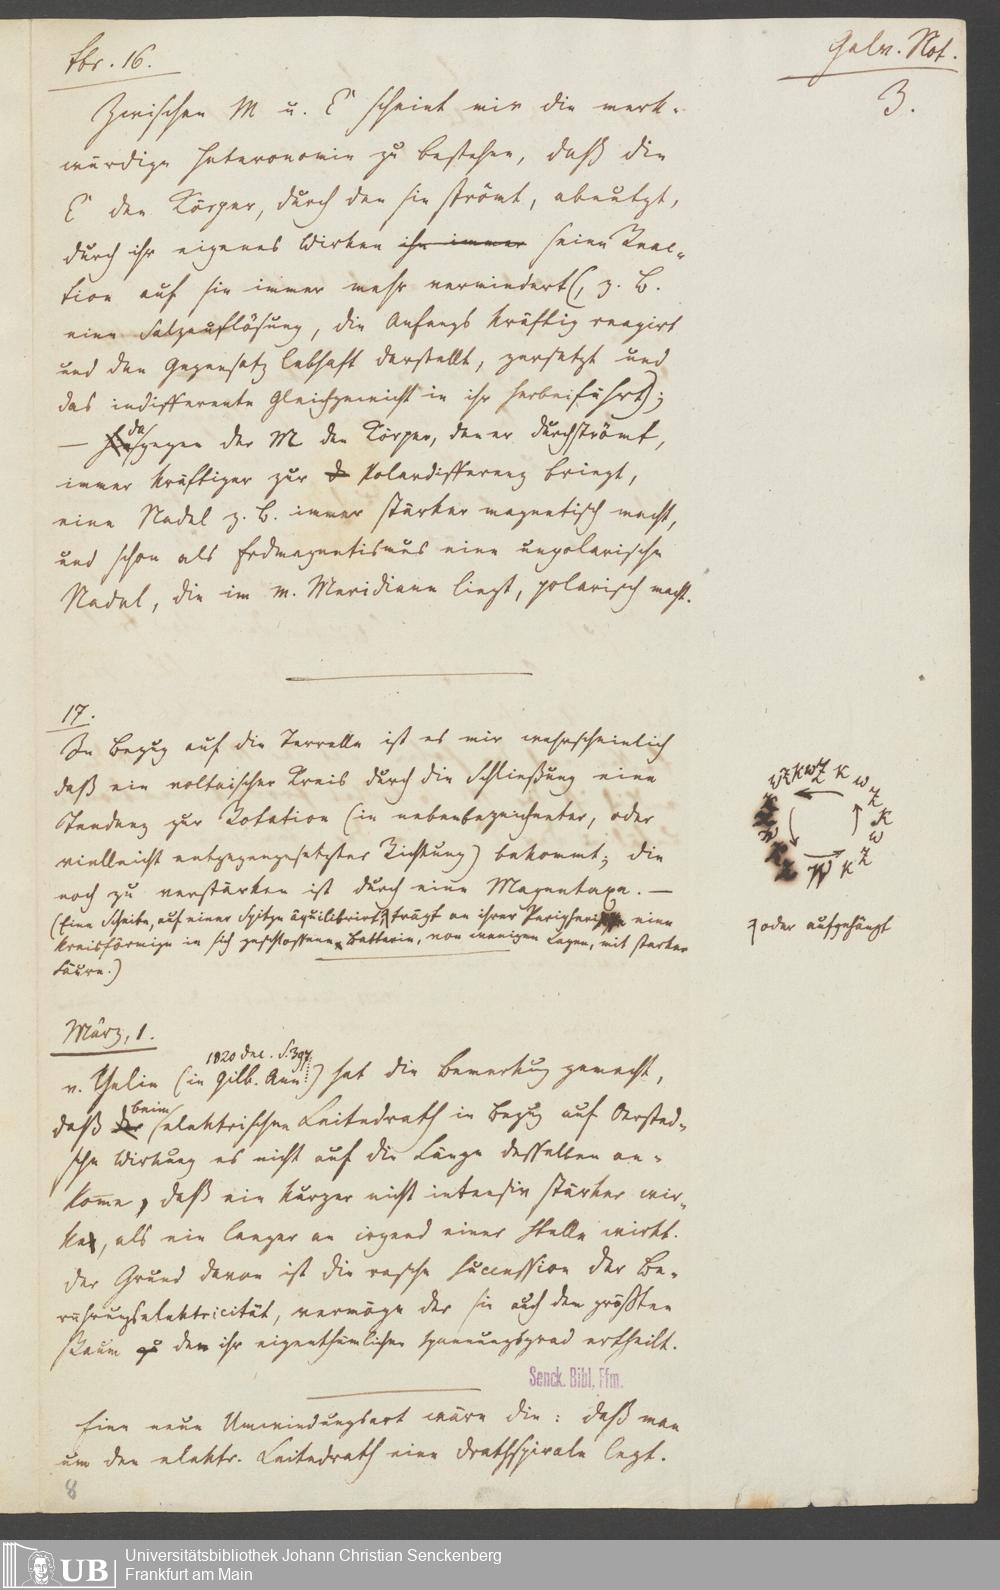 Galv. Not.
3.
Fbr. 16.
Zwischen M u. E scheint mir die merk-
würdige Heteronomie zu bestehen, daß die
E den Körper, durch den sie strömt, abnutzt,
durch ihr eigenes Wirken ihn immer seine Reac-
tion auf sie immer mehr vermindert (, z. B.
eine Salzauflösung, die Anfangs kräftig reagirt
und den Gegensatz lebhaft darstellt, zersetzt und
das indifferente Gleichgewicht in ihr herbeiführt);
— dagegen der M den Körper, den er durchströmt,
immer kräftiger zur Polardifferenz bringt,
eine Nadel z. B. immer stärker magnetisch macht,
und schon als Erdmagnetismus eine unpolarische
Nadel, die im m. Meridiane liegt, polarisch macht.
17.
In Bezug auf die Terrelle ist es mir wahrscheinlich
daß ein voltaischer Kreis durch die Schließung eine
Tendenz zur Rotation (in nebenbezeichneter, oder
vielleicht entgegengesetzter Richtung) bekommt; die
noch zu verstärken ist durch eine Magnetaxe. —
(Eine Scheibe, auf einer Spitze äquilibrirt, trägt an ihrer Peripherie eine
kreisförmige in sich geschlossene Batterie, von wenigen Lagen, mit starker
Säure.)
W Z K W Z K W Z K W Z K W
oder aufgehängt
März, 1.
v. Yelin (in Gilb. Ann. 1820 Dec. S. 397) hat die Bemerkung gemacht,
daß der beim elektrischen Leitedrath in Bezug auf Oersted-
sche Wirkung es nicht auf die Länge desselben an-
komme, daß ein kurzer nicht intensiv stärker wir-
ke, als ein langer an irgend einer Stelle wirkt.
Der Grund davon ist die rasche Succession der Be-
rührungselektricität, vermöge der sie auch dem größten
Raum den ihr eigenthümlichen Spannungsgrad ertheilt.
Senck. Bibl. Ffm.
Eine neue Umwindungsart wäre die: daß man
um den elektr. Leitedrath eine Drathspirale legt.
8
UB
Universitätsbibliothek Johann Christian Senckenberg
Frankfurt am Main